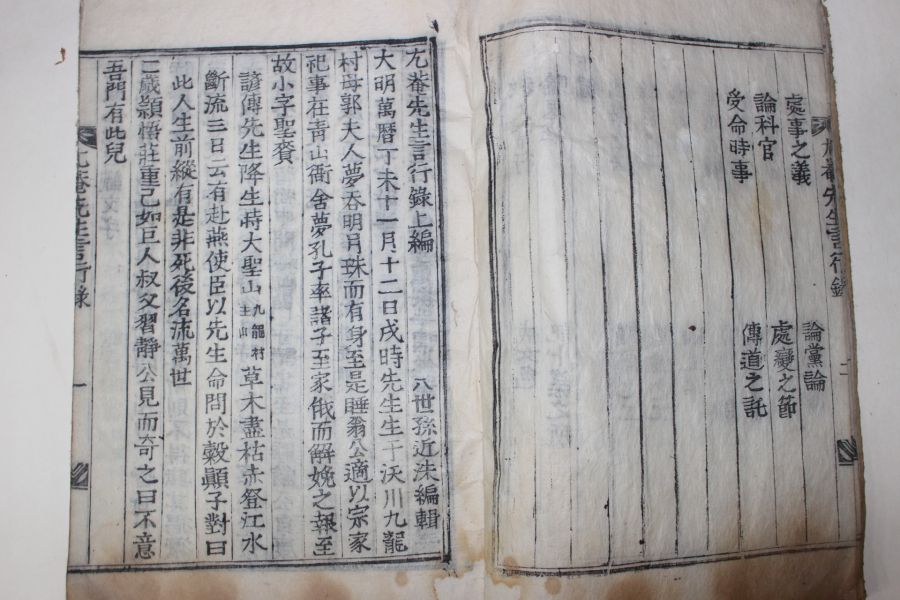 處事之義 論黨論
論科宦 處變之節
受命時事 傳道之託
尤菴先生言行錄上編 八世孫近洙編輯
大明萬曆丁未十一月十二日戌時先生生于沃川九龍
村母郭夫人夢呑明月珠而有身至是睡翁公適以宗家
祀事在靑山衙舍夢孔子率諸子至家俄而解娩之報至
故小字聖賚
諺傳先生降生時大聖山九龍村主山草木盡枯赤登江水
斷流三日云有赴燕使臣以先生命問於穀顚子對曰
此人生前縱有是非死後名流萬世
二歲穎悟莊重已如巨人叔父習靜公見而奇之曰不意
吾門有此兒
尤菴先生言行錄 一